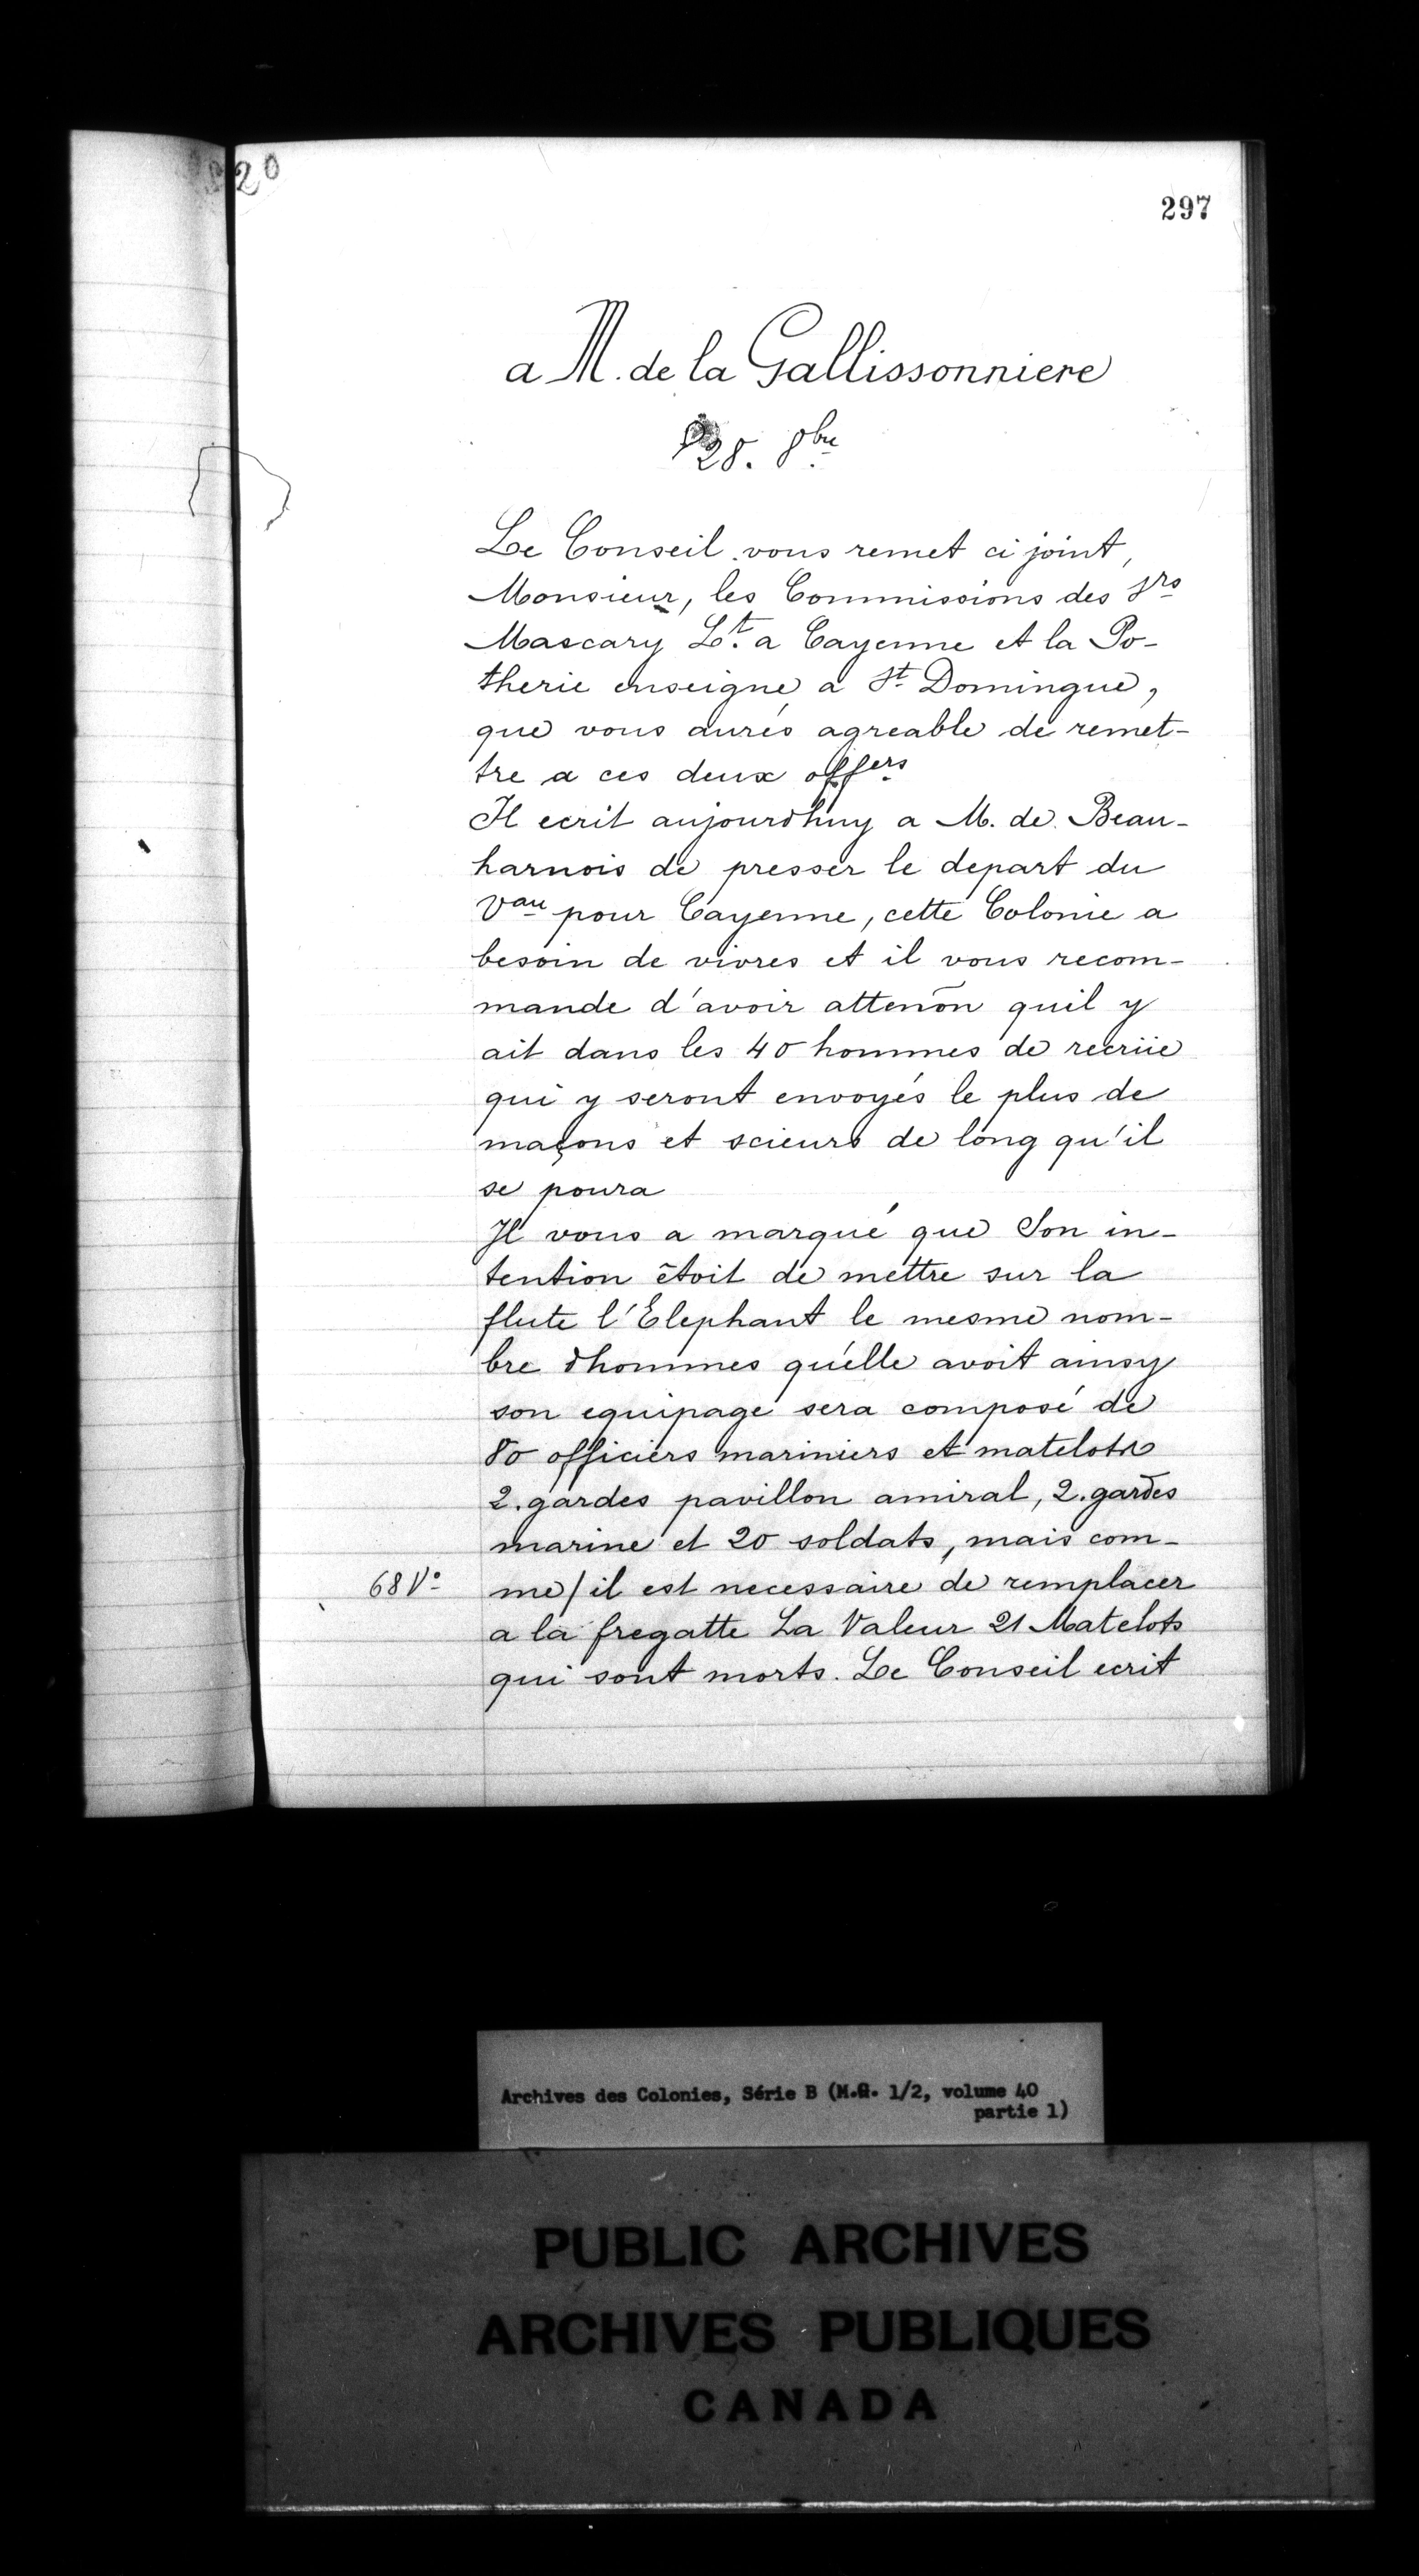 20
297
a M. de la Gallissonniere
28. 8bre
Le Conseil vous remet ci joint,
Monsieur, les Commissions des Srs
Mascary Lt. a Cayenne et la Po-
therie enseigne a St Domingue,
que vous aurés agreable de remet-
tre a ces deux offers
Il ecrit aujourdhuy a M. de Beau-
harnois de presser le depart du
Vau pour Cayenne, cette Colonie a
besoin de vivres et il vous recom-
mande d'avoir attenõn quil y
ait dans les 40 hommes de recrüe
qui y seront envoyés le plus de
maçons et scieurs de long qu'il
se poura
Il vous a marqué que Son in-
tention êtoit de mettre sur la
flute l'Elephant le mesme nom-
bre dhommes qu'elle avoit ainsy
son equipage sera composé de
80 officiers mariniers et matelots
2. gardes pavillon amiral, 2. gardes
marine et 20 soldats, mais com-
68 Vo
me/il est necessaire de remplacer
a la fregatte La Valeur 21 Matelots
qui sont morts. Le Conseil ecrit
Archives des Colonies, Série B (M.G. 1/2, volume 40
partie 1)
PUBLIC ARCHIVES
ARCHIVES PUBLIQUES
CANADA